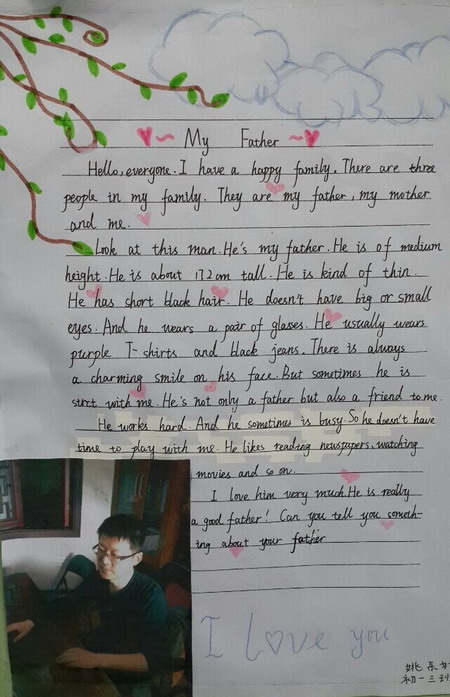 My Father
Hello, everyone. I have a happy family. There are three
people in my family. They are my father, my mother
and me.
Look at this man. He's my father. He is of medium
height. He is about 172cm tall. He is kind of thin.
He has short black hair. He doesn't have big or small
eyes. And he wears a pair of glasses. He usually wears
purple T-shirts and black jeans. There is always
a charming smile on his face. But sometimes he is
strct with me. He's not only a father but also a friend to me.
He works hard. And he sometimes is busy. So he doesn't have
time to play with me. He likes reading newspapers, watching
movies and so on.
I love him very much. He is really
a good father! Can you tell you someth-
ing about your father
I love you
初一三班